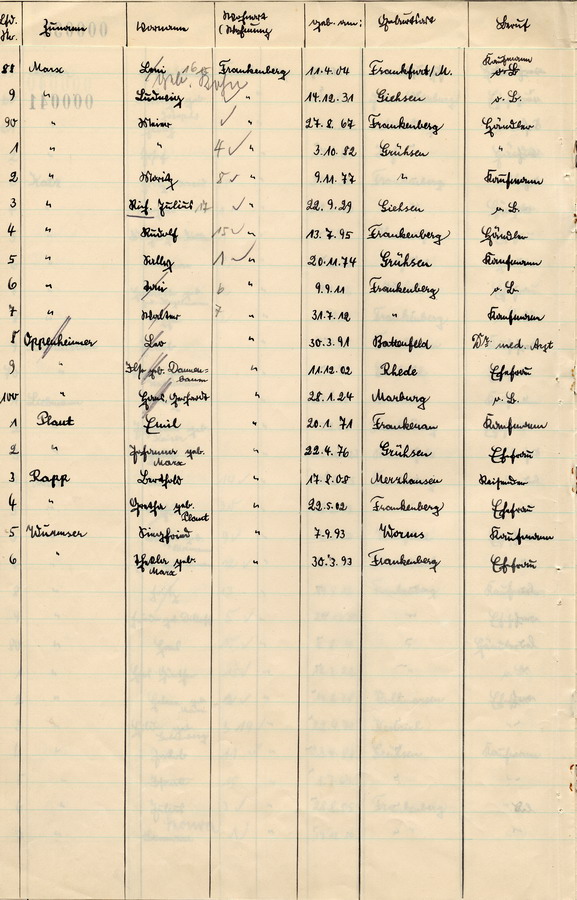 Lfd. Nr. Zuname Vorname Wohnort (Wohnung) geb. am: Geburtsort Beruf
88 Marx Leni Frankenberg 11.4.04 Frankfurt/M. Kaufmann o. B.
9 " Ludwig " 14.12.31 Giehsen o. B.
90 " Meier " 27.8.67 Frankenberg Händler
1 " " 4 " 3.10.82 Grühsen "
2 " Moritz 8 " 9.11.77 " Kaufmann
3 " Rich. Julius 17 " 22.9.29 Giehsen o. B.
4 " Rudolf 15 " 13.7.95 Frankenberg Händler
5 " Sally 1 " 20.11.74 Grühsen Kaufmann
6 " 6 " 9.9.11 Frankenberg o. B.
7 " Walter 7 " 31.7.12 " Kaufmann
8 Oppenheimer Leo " 30.3.91 Battenfeld Dr. med. Arzt
9 " Ilse geb. Dannen= " 11.12.02 Rhede Ehefrau
baum
100 " Hans Gerhardt " 28.1.24 Marburg o. B.
1 Plaut Emil " 20.1.71 Frankenau Kaufmann
2 " Johanna geb. " 22.4.76 Grühsen Ehefrau
Marx
3 Rapp Berthold " 17.8.08 Merzhausen Reisender
4 " Gretha geb. " 22.5.02 Frankenberg Ehefrau
Plaut
5 Wurmser Siegfried " 7.9.93 Worms Kaufmann
6 " Thekla geb. " 30.3.93 Frankenberg Ehefrau
Marx